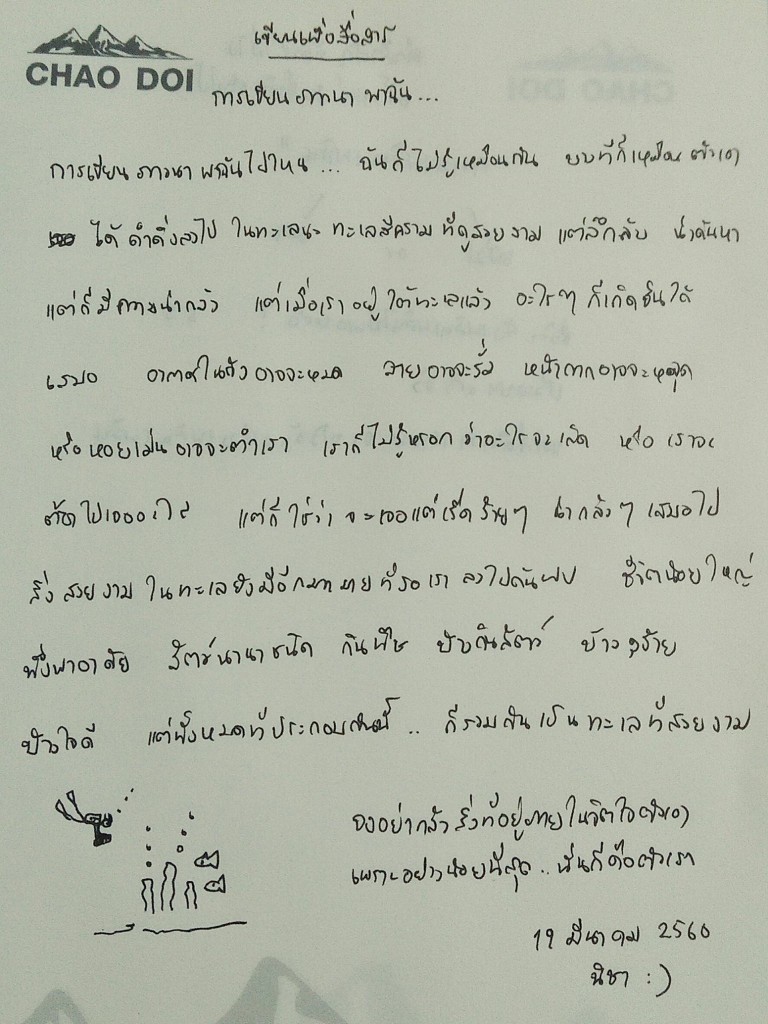 CHAO DOI
เขียนเพื่อสื่อสาร
การเขียนภาวนา พาฉัน...
การเขียนภาวนา พาฉันไปไหน... ฉันก็ไม่รู้เหมือนกัน บางทีก็เหมือนตัวเอง
ได้ดำดิ่งลงไป ในทะเลนะ ทะเลสีคราม ที่ดูสวยงาม แต่ลึกลับ น่าค้นหา
แต่ก็มีความน่ากลัว แต่เมื่อเราอยู่ใต้ทะเลแล้ว อะไรๆ ก็เกิดขึ้นได้
เสมอ อากาศในถังอาจจะหมด สายอาจจะรั่ว หน้ากากอาจจะหลุด
หรือหอยเม่นอาจจะตำเรา เราก็ไม่รู้หรอกว่าอะไรจะเกิด หรือ เราจะ
ต้องไปเจออะไร แต่ก็ใช่ว่า จะเจอแต่เรื่องร้ายๆ น่ากลัวๆ เสมอไป
สิ่งสวยงามในทะเลยังมีอีกมากมายที่รอเราลงไปค้นพบ ชีวิตน้อยใหญ่
พึ่งพาอาศัย สัตว์นานาชนิด กินพืช บ้างกินสัตว์ บ้างดุร้าย
บ้างใจดี แต่ทั้งหมดที่ประกอบกันนี้.. ก็รวมกันเป็นทะเลที่สวยงาม
จงอย่ากลัวสิ่งที่อยู่ภายในจิตใจตัวเอง
เพราะอย่างน้อยที่สุด.. นั่นก็คือตัวเรา
19 มีนาคม 2560
นิชา :)